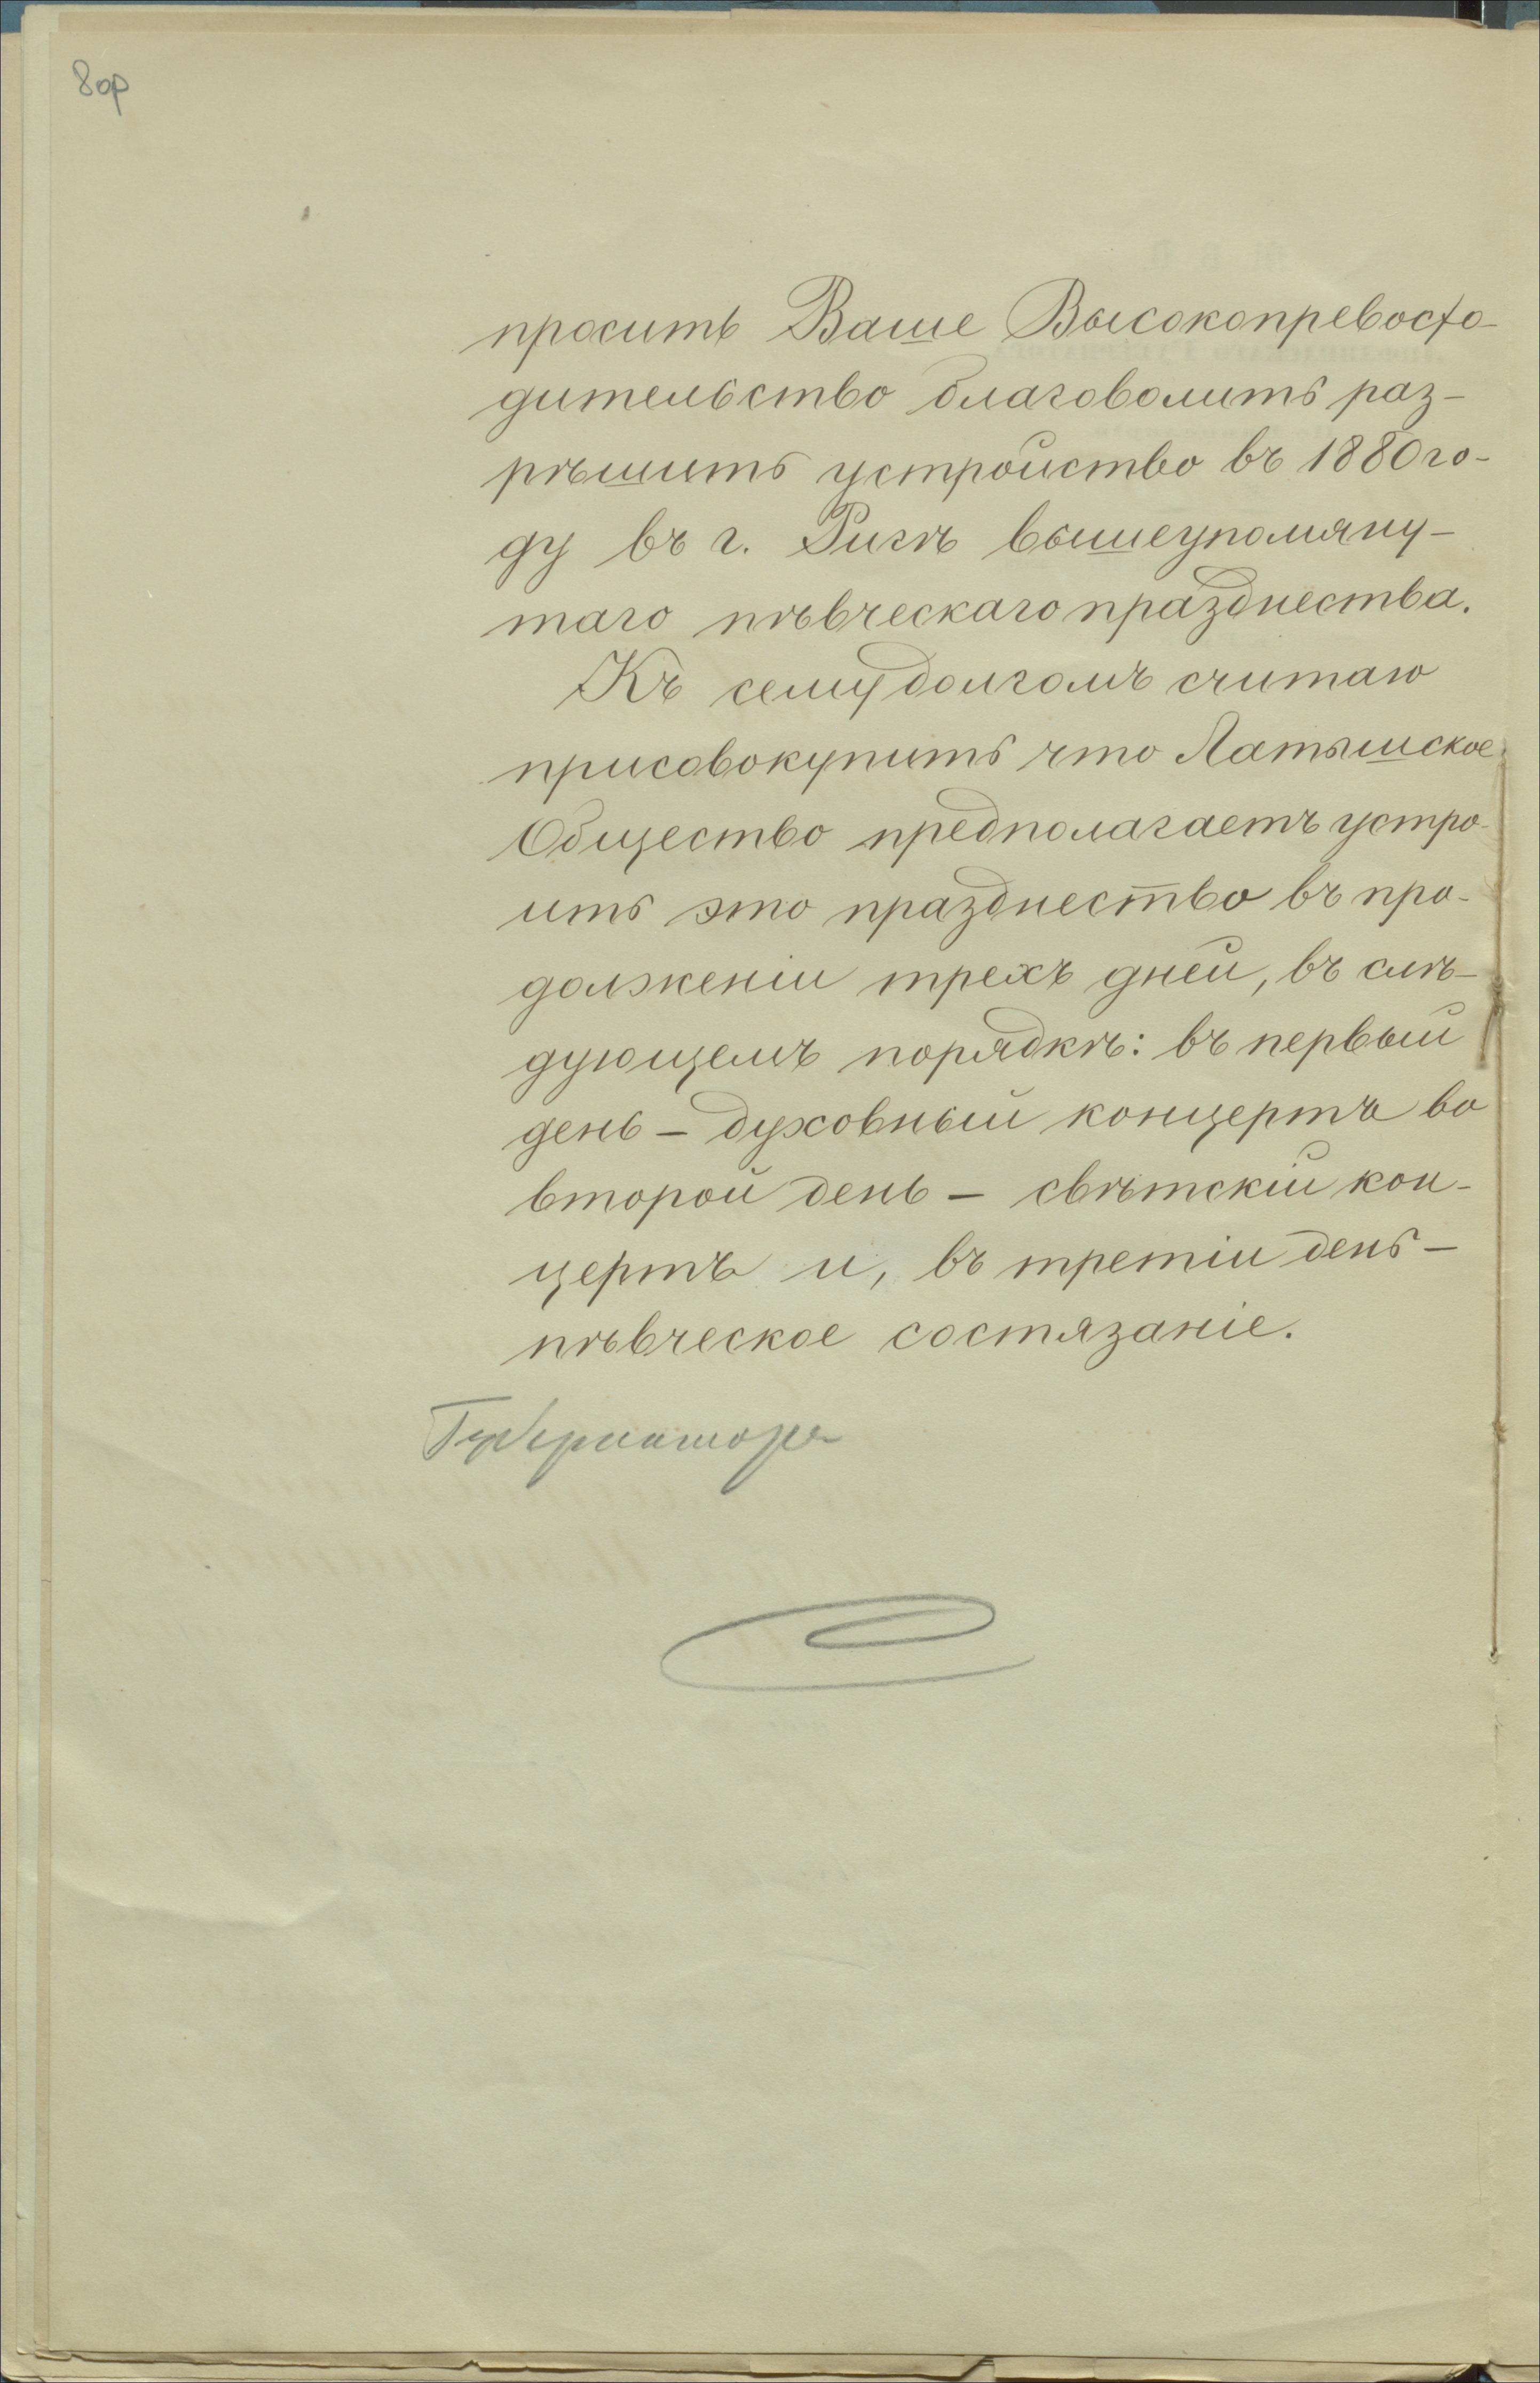 8op
просить Ваше Высокопревосхо-
дительство благоволить раз-
рѣшить устройство въ 1880 го-
ду въ г. Ригѣ вышеупомяну-
таго пѣвческаго празднества.
Къ сему долгомъ считаю
присовокупить что Латышское
Общество предполагаетъ устро-
ить это празднество въ про-
долженіи трехъ дней, въ слѣ-
дующемъ порядкѣ: въ первый
день – духовный концертъ во
второй день – свѣтскій кон-
цертъ и, въ третій день –
пѣвческое состязаніе.
Губернаторъ